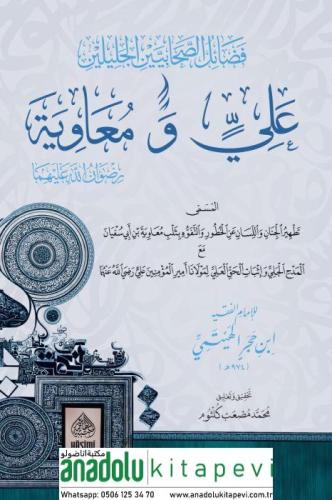 فَضَائِلُ الصَّحَابِيَّيْنِ الجَلِيلَيْنِ
عَلِيٍّ وَ مُعَاوِيَةَ
رِضْوَانُ اللّٰهِ عَلَيْهِمَا
المُسَمَّى
تَطْهِيرُ الجَنَانِ وَاللِّسَانِ عَنِ الخُطُورِ وَالتَّفَوُّهِ بِثَلْبِ مُعَاوِيَةَ بْنِ أَبِي سُفْيَانَ
مَعَ
المَدْحِ الجَلِيِّ وَإِثْبَاتِ الحَقِّ العَلِيِّ لِمَوْلَانَا أَمِيرِ المُؤْمِنِينَ عَلِيٍّ رَضِيَ اللّٰهُ عَنْهُمَا
لِلإِمَامِ الفَقِيهِ
ابْنِ حَجَرٍ الهَيْتَمِيِّ
(٩٧٤هـ)
تَحْقِيقُ وَتَعْلِيقُ
مُحَمَّد مُصْعَب كُلْثُوم
HAŞİMİ
مكتبة اناضولو
anadolukitapevi
Whatsapp: 0506 125 34 70 www.anadolukitapevi.com.tr